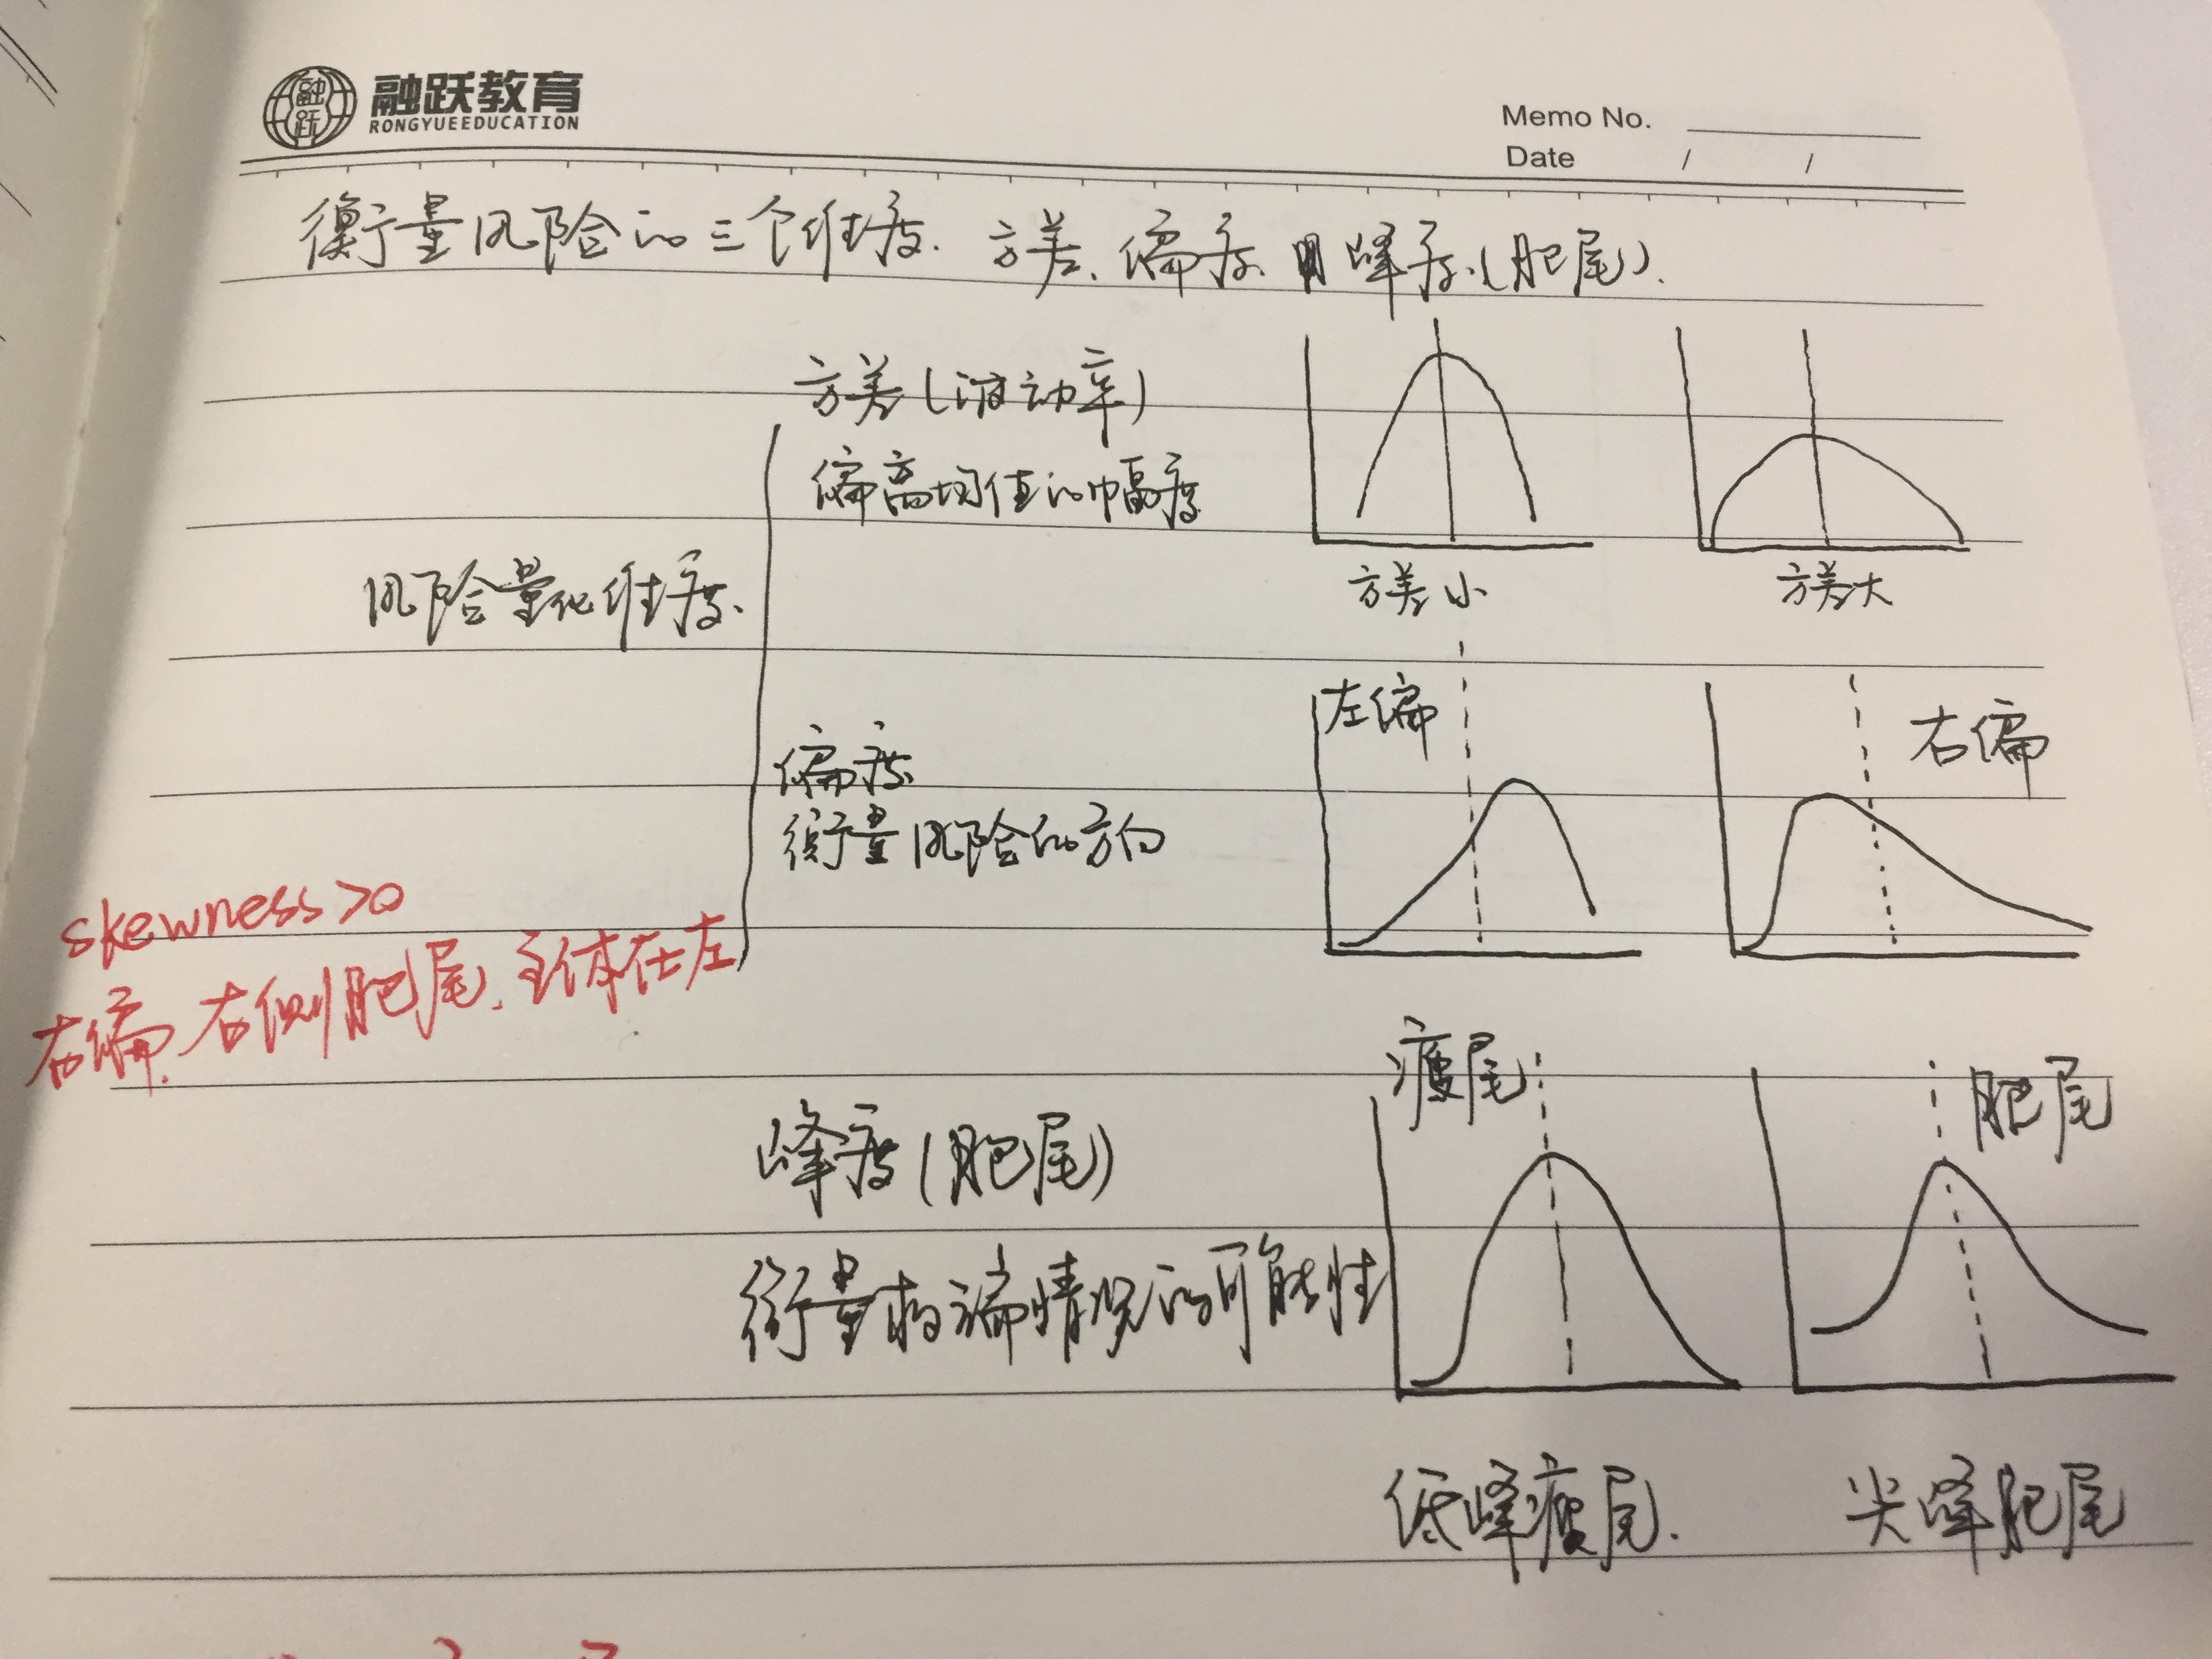 融跃
融跃教育
RONGYUEEDUCATION
Memo No.
Date / /
衡量风险的三个维度. 方差、偏度、峰度(肥尾).
方差(波动率)
偏离均值的幅度
方差小
方差大
风险量化维度
左偏
右偏
偏度
衡量风险的方向
skewness>0
右偏、右侧肥尾、主体在左
瘦尾
肥尾
峰度(肥尾)
衡量极端情况的可能性
低峰瘦尾.
尖峰肥尾